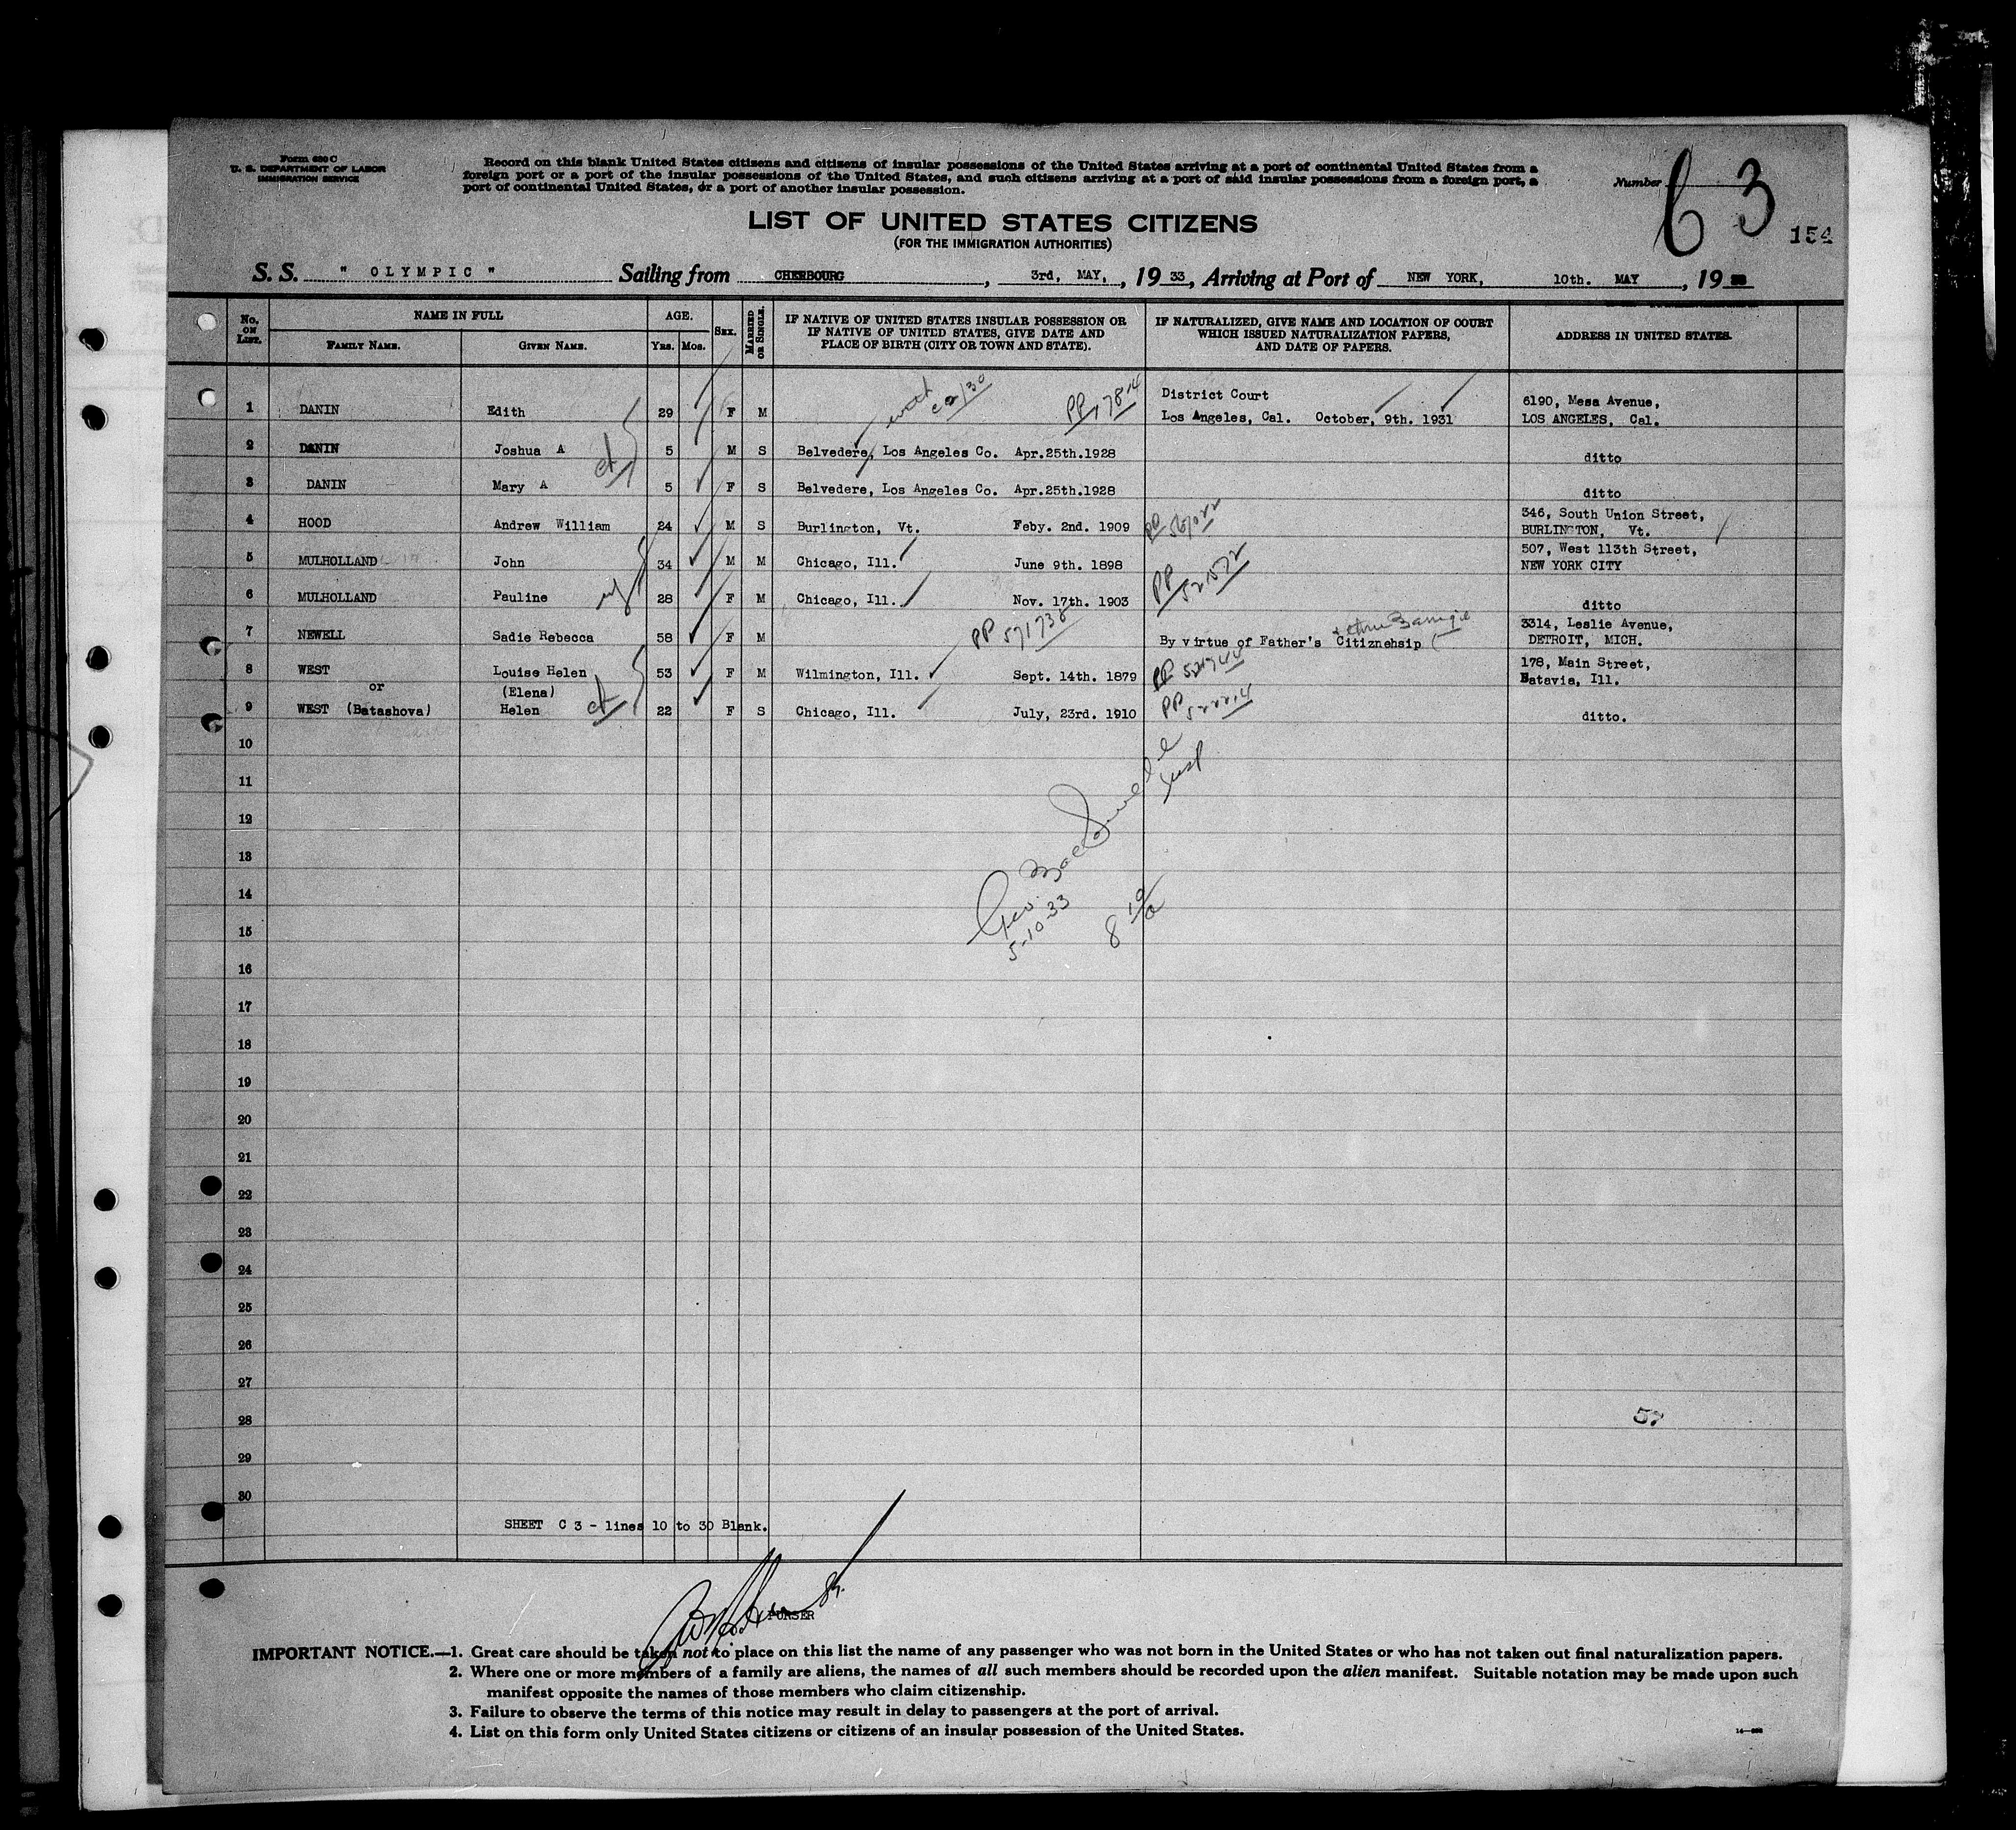 Form 630 C
U. S. DEPARTMENT OF LABOR
IMMIGRATION SERVICE
Record on this blank United States citizens and citizens of insular possessions of the United States arriving at a port of continental United States from a
foreign port or a port of the insular possessions of the United States, and such citizens arriving at a port of said insular possessions from a foreign port, a
port of continental United States, or a port of another insular possession.
Number 63
154
LIST OF UNITED STATES CITIZENS
(FOR THE IMMIGRATION AUTHORITIES)
S. S. " OLYMPIC " Sailing from CHERBOURG, 3rd, MAY, , 19 33, Arriving at Port of NEW YORK, 10th. MAY , 19
No. ON LIST. NAME IN FULL FAMILY NAME. GIVEN NAME. AGE. YRS. MOS. SEX. MARRIED OR SINGLE. IF NATIVE OF UNITED STATES INSULAR POSSESSION OR IF NATIVE OF UNITED STATES, GIVE DATE AND PLACE OF BIRTH (CITY OR TOWN AND STATE). IF NATURALIZED, GIVE NAME AND LOCATION OF COURT WHICH ISSUED NATURALIZATION PAPERS, AND DATE OF PAPERS. ADDRESS IN UNITED STATES.
1 DANIN Edith 29 F M PP 17814 District Court Los Angeles, Cal. October, 9th. 1931 6190, Mesa Avenue, LOS ANGELES, Cal.
2 DANIN Joshua A 5 M S Belvedere, Los Angeles Co. Apr.25th.1928 ditto
3 DANIN Mary A 5 F S Belvedere, Los Angeles Co. Apr.25th.1928 ditto
4 HOOD Andrew William 24 M S Burlington, Vt. Feby. 2nd. 1909 PP 346, South Union Street, BURLINGTON, Vt.
5 MULHOLLAND John 34 M M Chicago, Ill. June 9th. 1898 507, West 113th Street, NEW YORK CITY
6 MULHOLLAND Pauline 28 F M Chicago, Ill. Nov. 17th. 1903 PP 521572 ditto
7 NEWELL Sadie Rebecca 58 F M PP 571738 By virtue of Father's Citiznehsip 3314, Leslie Avenue, DETROIT, MICH.
8 WEST Louise Helen 53 F M Wilmington, Ill. Sept. 14th. 1879 PP 178, Main Street, Batavia, Ill.
or (Elena)
9 WEST (Batashova) Helen 22 F S Chicago, Ill. July, 23rd. 1910 PP 52214 ditto.
10
11
12
13
14
15
16
17
18
19
20
21
22
23
24
25
26
27
28
29
30
Geo.
Insp
5-10-33
8 10/a
57
SHEET C 3 - lines 10 to 30 Blank.
PURSER
IMPORTANT NOTICE.—1. Great care should be taken not to place on this list the name of any passenger who was not born in the United States or who has not taken out final naturalization papers.
2. Where one or more members of a family are aliens, the names of all such members should be recorded upon the alien manifest. Suitable notation may be made upon such
manifest opposite the names of those members who claim citizenship.
3. Failure to observe the terms of this notice may result in delay to passengers at the port of arrival.
4. List on this form only United States citizens or citizens of an insular possession of the United States.